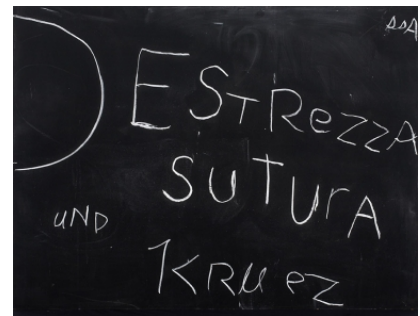 AAA
DESTREZZA
SUTURA
UND
KRUEZ